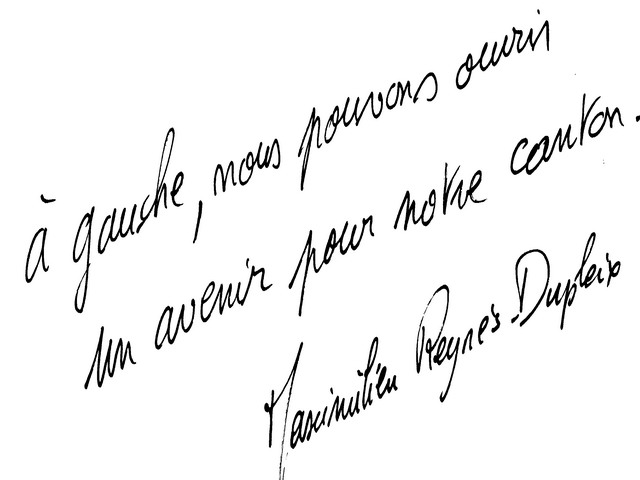 à gauche, nous pouvons ouvrir
un avenir pour notre canton.
Maximilien Reynès-Dupleix